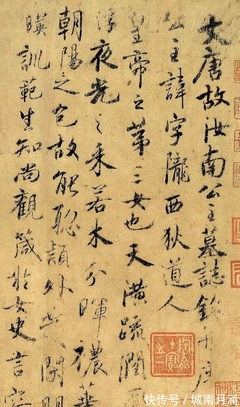 大唐故汝南公主墓誌銘 十月
公主諱字隴西狄道人
皇帝之第三女也天潢疏潤
浮夜光之采若木分暉穠華
朝陽之色故能聰穎外發閑明
暎訓範生知尚觀箴於女史言容
快传号/城南月涵